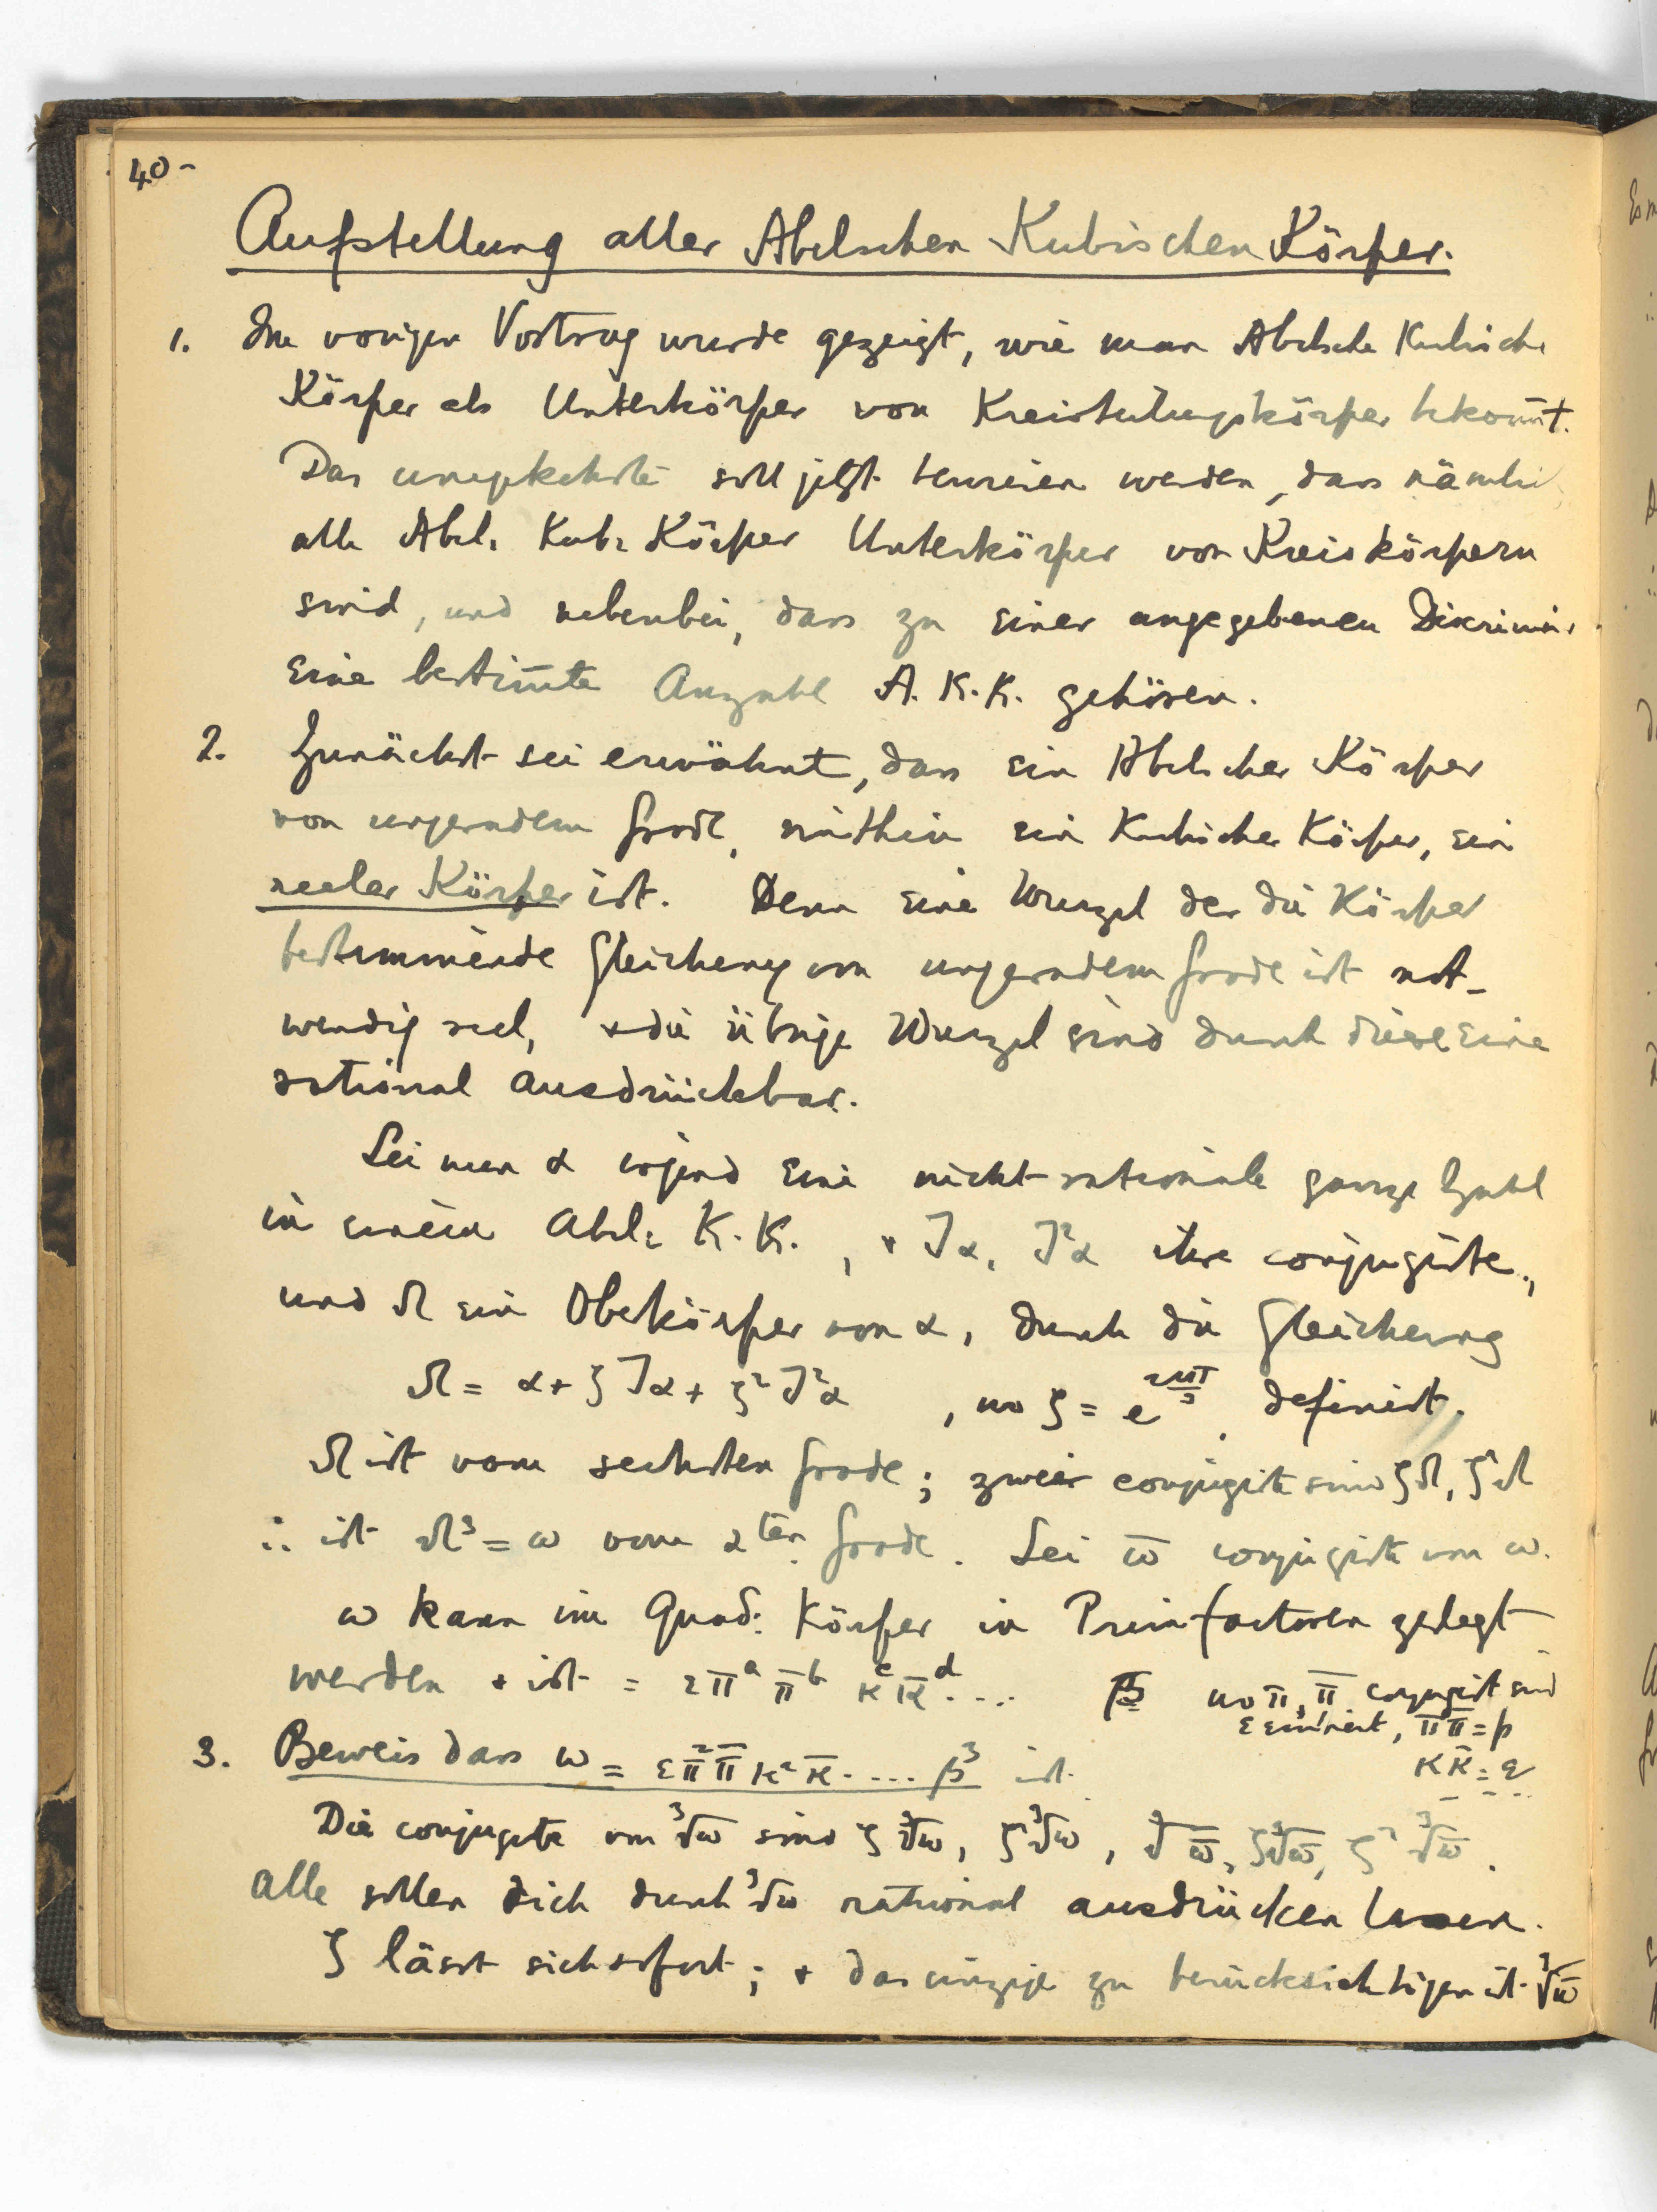 40-
Aufstellung aller Abelschen Kubischen Körper.
1. Im vorigen Vortrag wurde gezeigt, wie man Abelsche Kubische
Körper als Unterkörper von Kreisteilungskörper bekom̄t.
Das umgekehrte soll jetzt bewiesen werden, dass nämlich
alle Abel. Kub. Körper Unterkörper von Kreiskörpern
sind, und nebenbei, dass zu einer angegebenen Diskrimin.
eine bestim̄te Anzahl A. K. K. gehören.
2. Zunächst sei erwähnt, dass ein Abelscher Körper
von ungeradem Grade, mithin ein Kubischer Körper, ein
reeler Körper ist. Denn eine Wurzel der die Körper
bestimmende Gleichung von ungeradem Grade ist not-
wendig reel, + die übrige Wurzel sind durch diese eine
rational ausdrückbar.
Sei nun α irgend eine nicht-rationale ganze Zahl
in einem Abel. K. K., + Jα, J²α ihre conjugirte,
und Ω ein Oberkörper von α, durch die Gleichung
Ω = α + ζJα + ζ²J²α, wo ζ = e^{2πi/3} definirt.
Ω ist vom sechsten Grade; zwei conjugirte sind ζΩ, ζ²Ω
∴ ist Ω³ = ω vom 2ten Grade. Sei ω̄ conjugirte von ω.
ω kann im Quad. Körper in Primfactoren zerlegt
werden + ist = επ^a π̄^b κ^c κ̄^d .... wo π, π̄ conjugirt sind
ε einheit, ππ̄ = p
κκ̄ = q
3. Beweis dass ω = επ²π̄κ²κ̄ .... β³ ist.
Die conjugirte von ∛ω sind ζ∛ω, ζ²∛ω, ∛ω̄, ζ∛ω̄, ζ²∛ω̄.
Alle sollen sich durch ∛ω rational ausdrücken lassen.
ζ lässt sich sofort; + das einzige zu berücksichtigen ist ∛ω̄